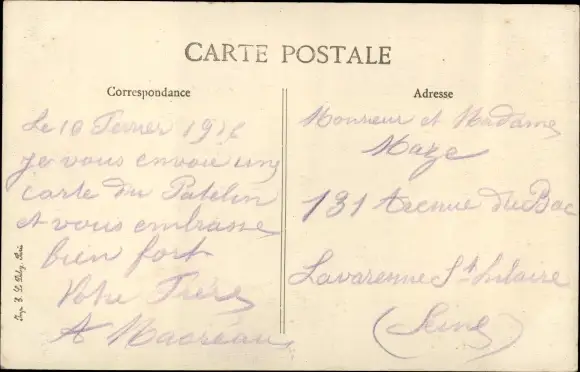 CARTE POSTALE
Correspondance
Le 10 Fevrier
je vous envoie une
carte du Patelin
et vous embrasse
bien fort
Votre Frère
A
Adresse
Monsieur et Madame
Maze
131 Avenue du Bac
Lavarenne St hilaire
(Seine)